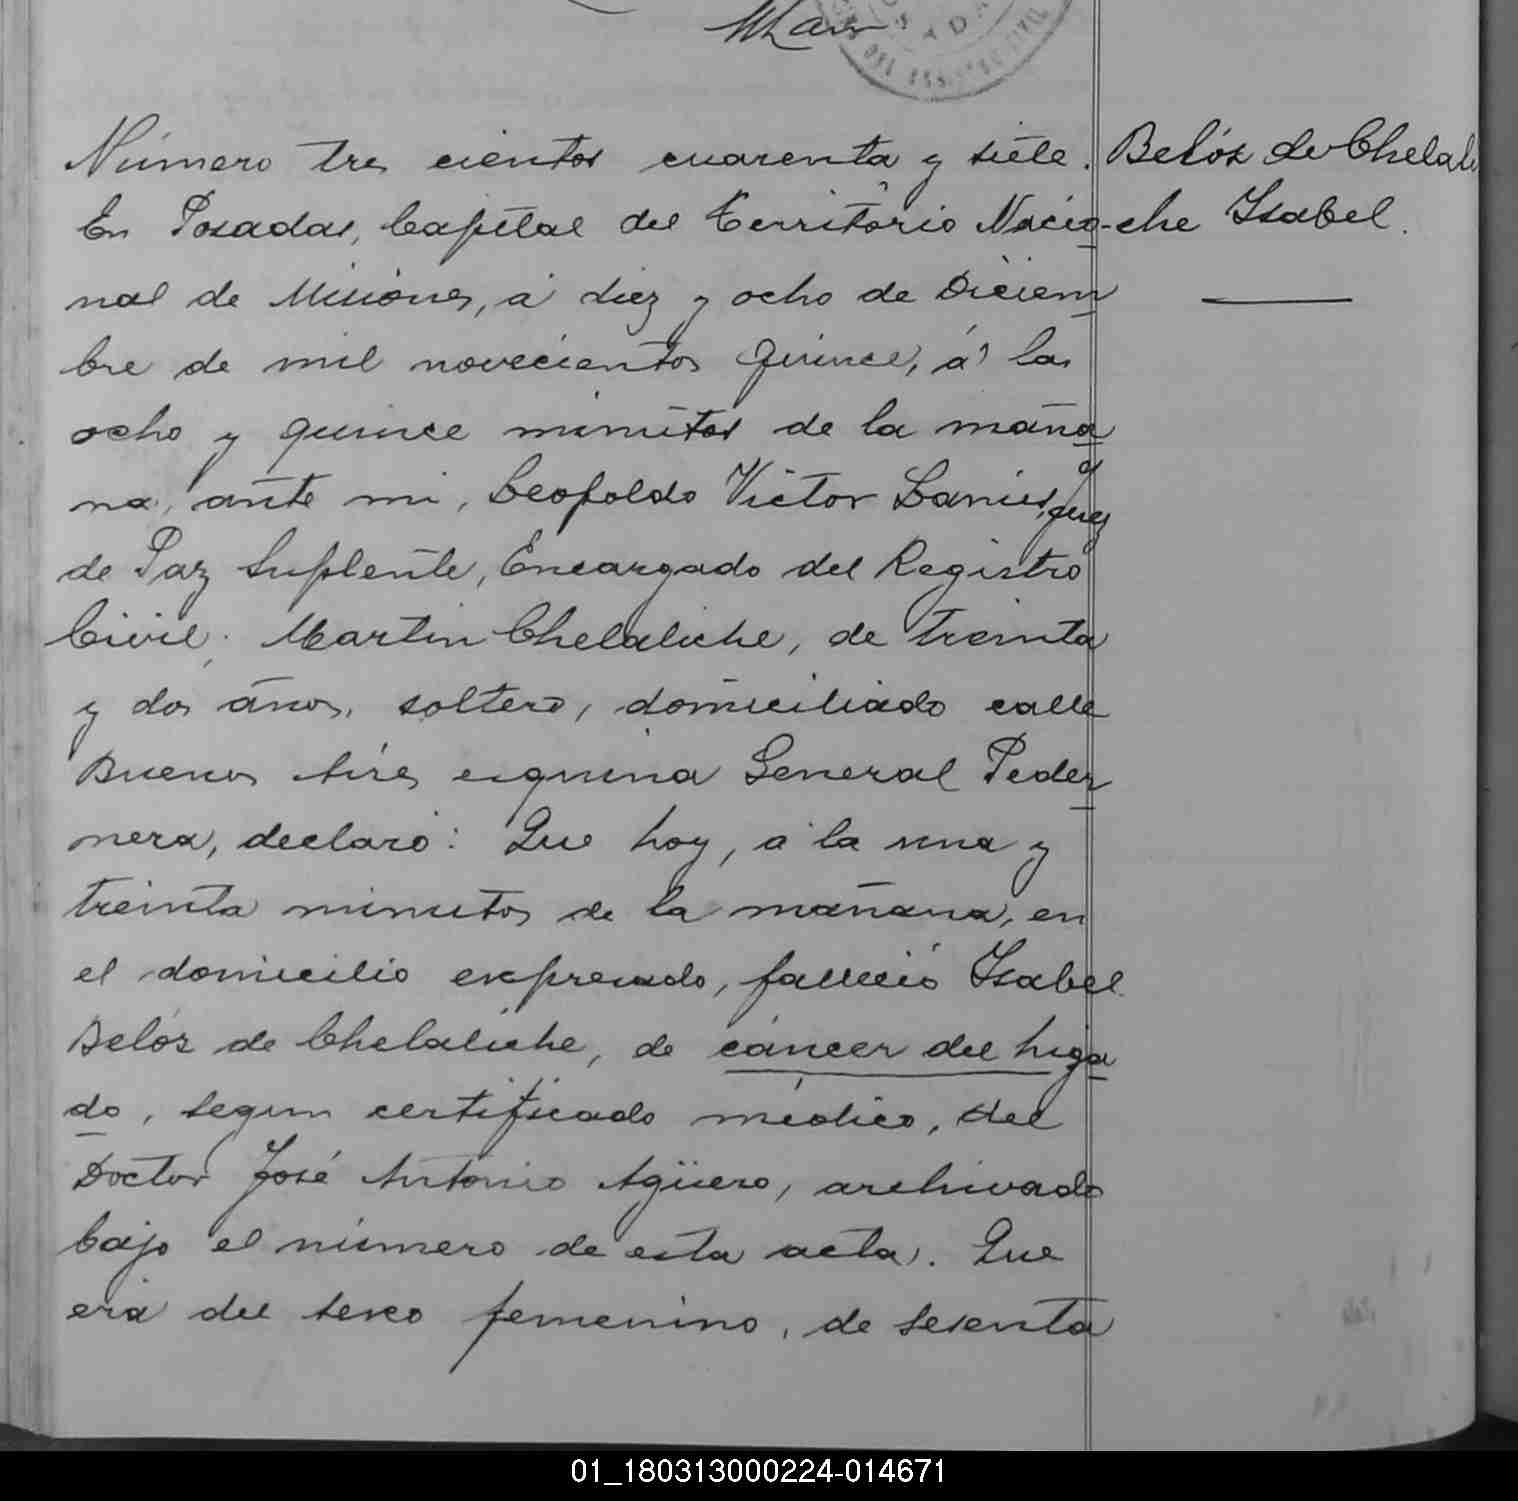 Número tres cientos cuarenta y siete.
Belóz de Chelali
che Isabel.
En Posadas, Capital del Territorio Nacio-
nal de Misiones, á diez y ocho de Diciem
bre de mil novecientos quince, á las
ocho y quince minutos de la maña
na, ante mi, Leopoldo Victor Juez
de Paz Suplente, Encargado del Registro
Civil; Martin Chelaliche, de treinta
y dos años, soltero, domiciliado calle
Buenos Aires esquina General Peder
nera, declaró: Que hoy, á la una y
treinta minutos de la mañana, en
el domicilio expresado, falleció Isabel
Belóz de Chelaliche, de cáncer del higa
do, segun certificado médico, del
Doctor José Antonio Agüero, archivado
bajo el número de esta acta. Que
era del sexo femenino, de sesenta
01_180313000224-014671